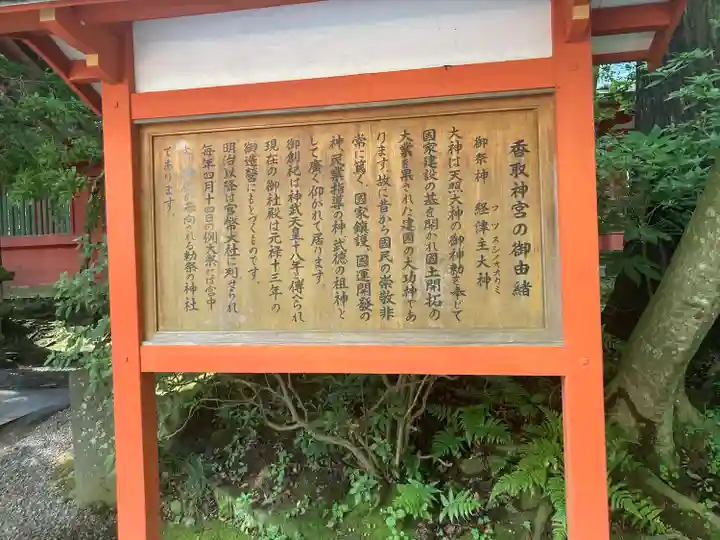 香取神宮の御由緒
御祭神 経津主大神
フツヌシノオオカミ
大神は天照大神の御神勅を奉じて
国家建設の基を開かれ国土開拓の
大業を果された建国の大功神であ
ります。故に昔から国民の崇敬非
常に篤く、国家鎮護、国運開発の
神、民業指導の神、武徳の祖神と
して廣く仰がれて居ります
御創祀は神武天皇十八年と傳へられ
現在の御社殿は元禄十三年の
御造営にもとづくものです。
明治以降は官幣大社に列せられ
毎年四月十四日の例大祭には宮中
参向される勅祭の神社
であります。